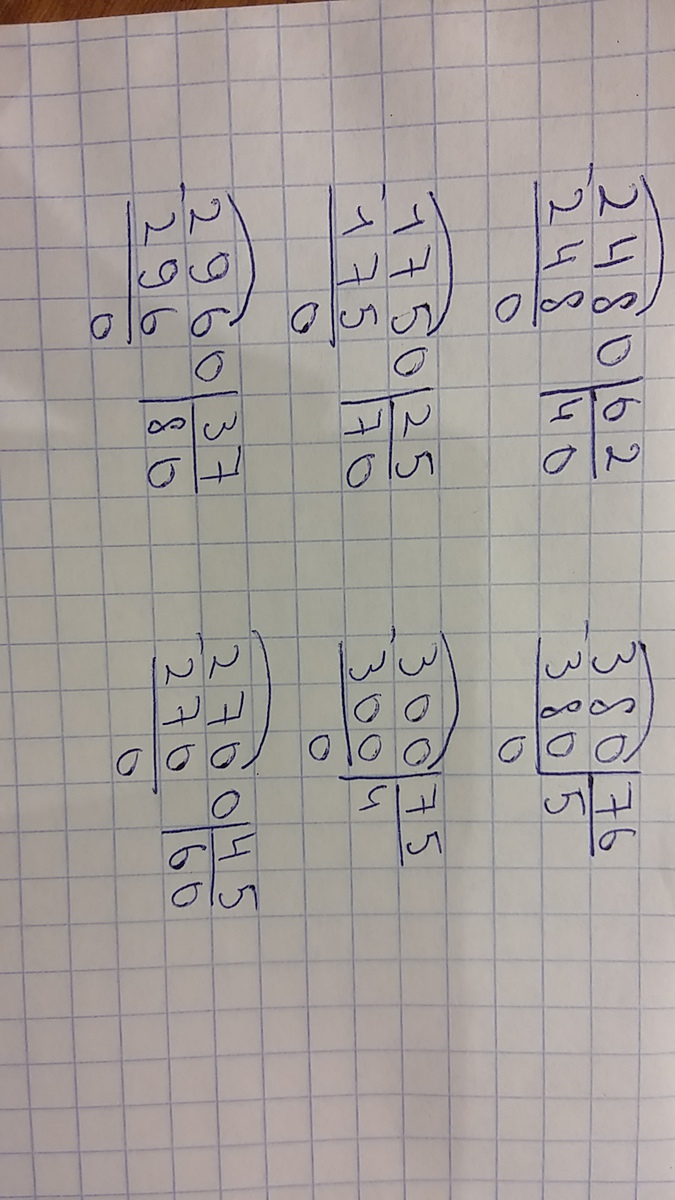 2480 62
248 40
0
380 76
380 5
0
1750 25
175 70
0
300 75
300 4
0
2960 37
296 80
0
2700 45
270 60
0